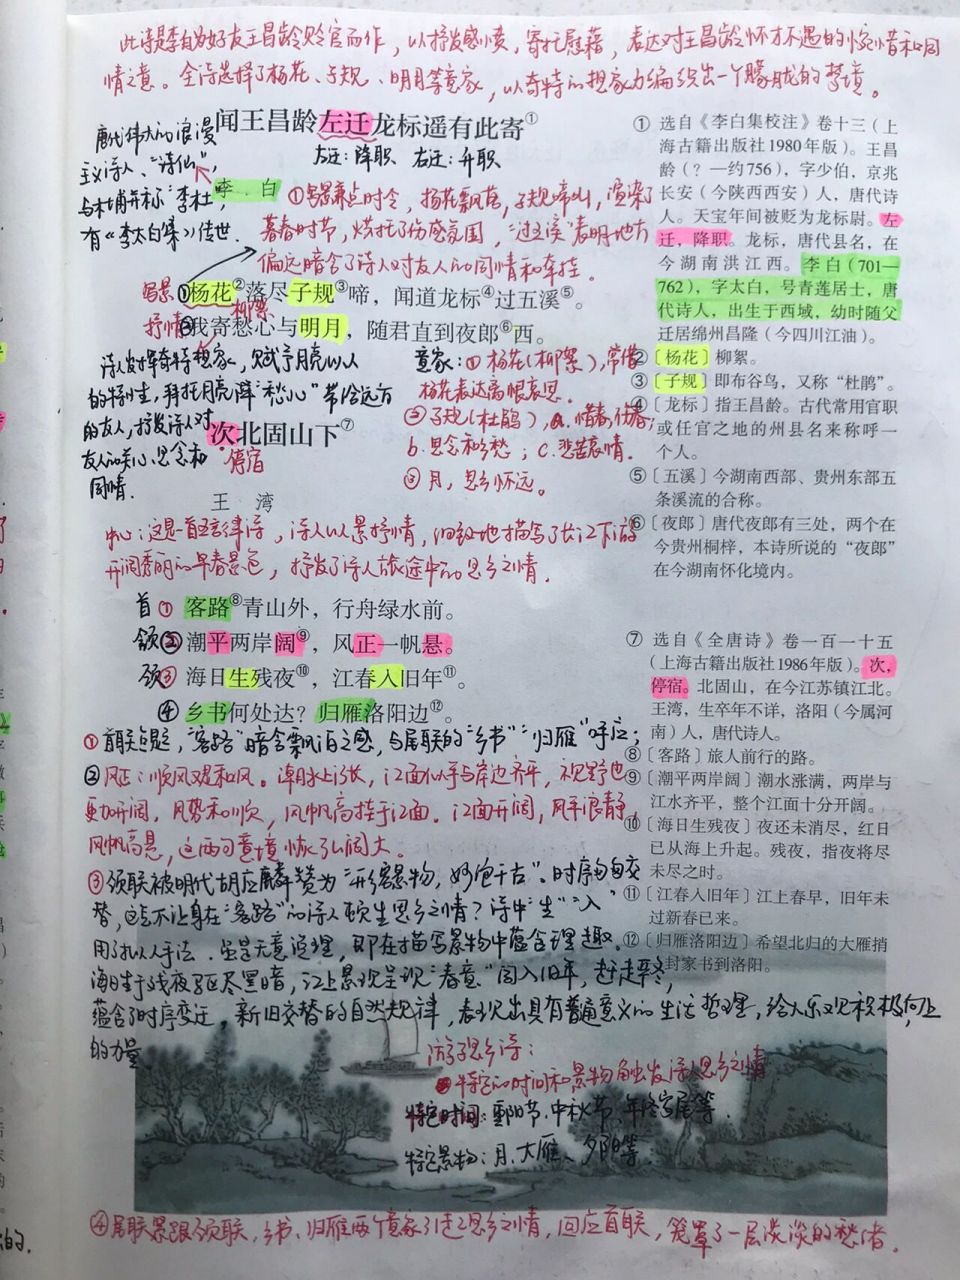 此诗是李白为好友王昌龄贬官而作，以抒发感愤，寄托慰藉，表达对王昌龄怀才不遇的惋惜和同
情之意。全诗选择了杨花、子规、明月等意象，以奇特的想象力编织出一个朦胧的梦境。
闻王昌龄左迁龙标遥有此寄①
左迁：降职、右迁：升职
唐代伟大的浪漫
主义诗人、“诗仙”，
与杜甫并称“李杜”，
有《李太白集》传世.
李 白
①写景兼点时令，杨花飘落，子规啼叫，渲染了
暮春时节，烘托了伤感氛围，“过五溪”表明地方
偏远暗含了诗人对友人的同情和牵挂。
写景①杨花②落尽子规③啼，闻道龙标④过五溪⑤。
柳絮
抒情②我寄愁心与明月，随君直到夜郎⑥西。
诗人发挥奇特想象，赋予月亮以人
的特性，拜托月亮降“愁心”带给远方
的友人，抒发诗人对
友人的关心、思念和
同情.
意象：①杨花（柳絮），常借
杨花表达离恨哀思.
②子规（杜鹃），a.惜春，伤春；
b.思念和乡愁；c.悲苦哀情.
③月，思乡怀远。
次北固山下⑦
停宿
王 湾
中心：这是一首五言律诗，诗人以景抒情，细致地描写了长江下游
开阔秀丽的早春景色，抒发了诗人旅途中的思乡之情.
首① 客路⑧青山外，行舟绿水前。
颔② 潮平两岸阔⑨，风正一帆悬。
颈③ 海日生残夜⑩，江春入旧年⑪。
④ 乡书何处达？归雁洛阳边⑫。
①首联点题，“客路”暗含飘泊之感，与尾联的“乡书”“归雁”呼应；
②风正：顺风又是和风。潮水上涨，江面似乎与岸边齐平，视野也
更加开阔，风势和顺，风帆高挂于江面。江面开阔，风平浪静，
风帆高悬，这两句意境恢弘阔大。
③颈联被明代胡应麟赞为“形容景物，妙绝千古”。时序匆匆交
替，这怎不让身在“客路”的诗人顿生思乡之情？诗中“生”“入”
用了拟人手法.虽是无意说理，却在描写景物中蕴含理趣。
海日生于残夜驱尽黑暗，江上景观呈现“春意”闯入旧年，赶走严冬，
蕴含了时序变迁，新旧交替的自然规律，表现出具有普遍意义的生活哲理，给人乐观积极向上
的力量
游子思乡诗：
特定的时间和景物触发诗人思乡之情
特定时间：重阳节、中秋节、年终岁尾等.
特定景物：月、大雁、夕阳等.
④尾联紧跟颈联，乡书、归雁两个意象引进思乡之情，回应首联，笼罩了一层淡淡的愁绪.
① 选自《李白集校注》卷十三（上
海古籍出版社1980年版）。王昌
龄（？—约756），字少伯，京兆
长安（今陕西西安）人，唐代诗
人。天宝年间被贬为龙标尉。左
迁，降职。龙标，唐代县名，在
今湖南洪江西。李白（701—
762），字太白，号青莲居士，唐
代诗人，出生于西域，幼时随父
迁居绵州昌隆（今四川江油）。
②〔杨花〕柳絮。
③〔子规〕即布谷鸟，又称“杜鹃”。
④〔龙标〕指王昌龄。古代常用官职
或任官之地的州县名来称呼一
个人。
⑤〔五溪〕今湖南西部、贵州东部五
条溪流的合称。
⑥〔夜郎〕唐代夜郎有三处，两个在
今贵州桐梓，本诗所说的“夜郎”
在今湖南怀化境内。
⑦ 选自《全唐诗》卷一百一十五
（上海古籍出版社1986年版）。次，
停宿。北固山，在今江苏镇江北。
王湾，生卒年不详，洛阳（今属河
南）人，唐代诗人。
⑧〔客路〕旅人前行的路。
⑨〔潮平两岸阔〕潮水涨满，两岸与
江水齐平，整个江面十分开阔。
⑩〔海日生残夜〕夜还未消尽，红日
已从海上升起。残夜，指夜将尽
未尽之时。
⑪〔江春入旧年〕江上春早，旧年未
过新春已来。
⑫〔归雁洛阳边〕希望北归的大雁捎
封家书到洛阳。